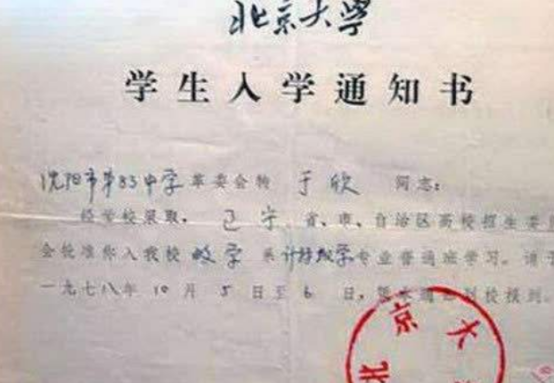 北京大学
学生入学通知书
沈阳市第83中学革委会转 于欣 同志:
经学校录取, 辽宁 省、市、自治区高校招生委
会批准你入我校 数学 系 计算数学专业普通班学习。请于
一九七八年 10 月 5 日至 6 日, 凭本通知到校报到。
北京大